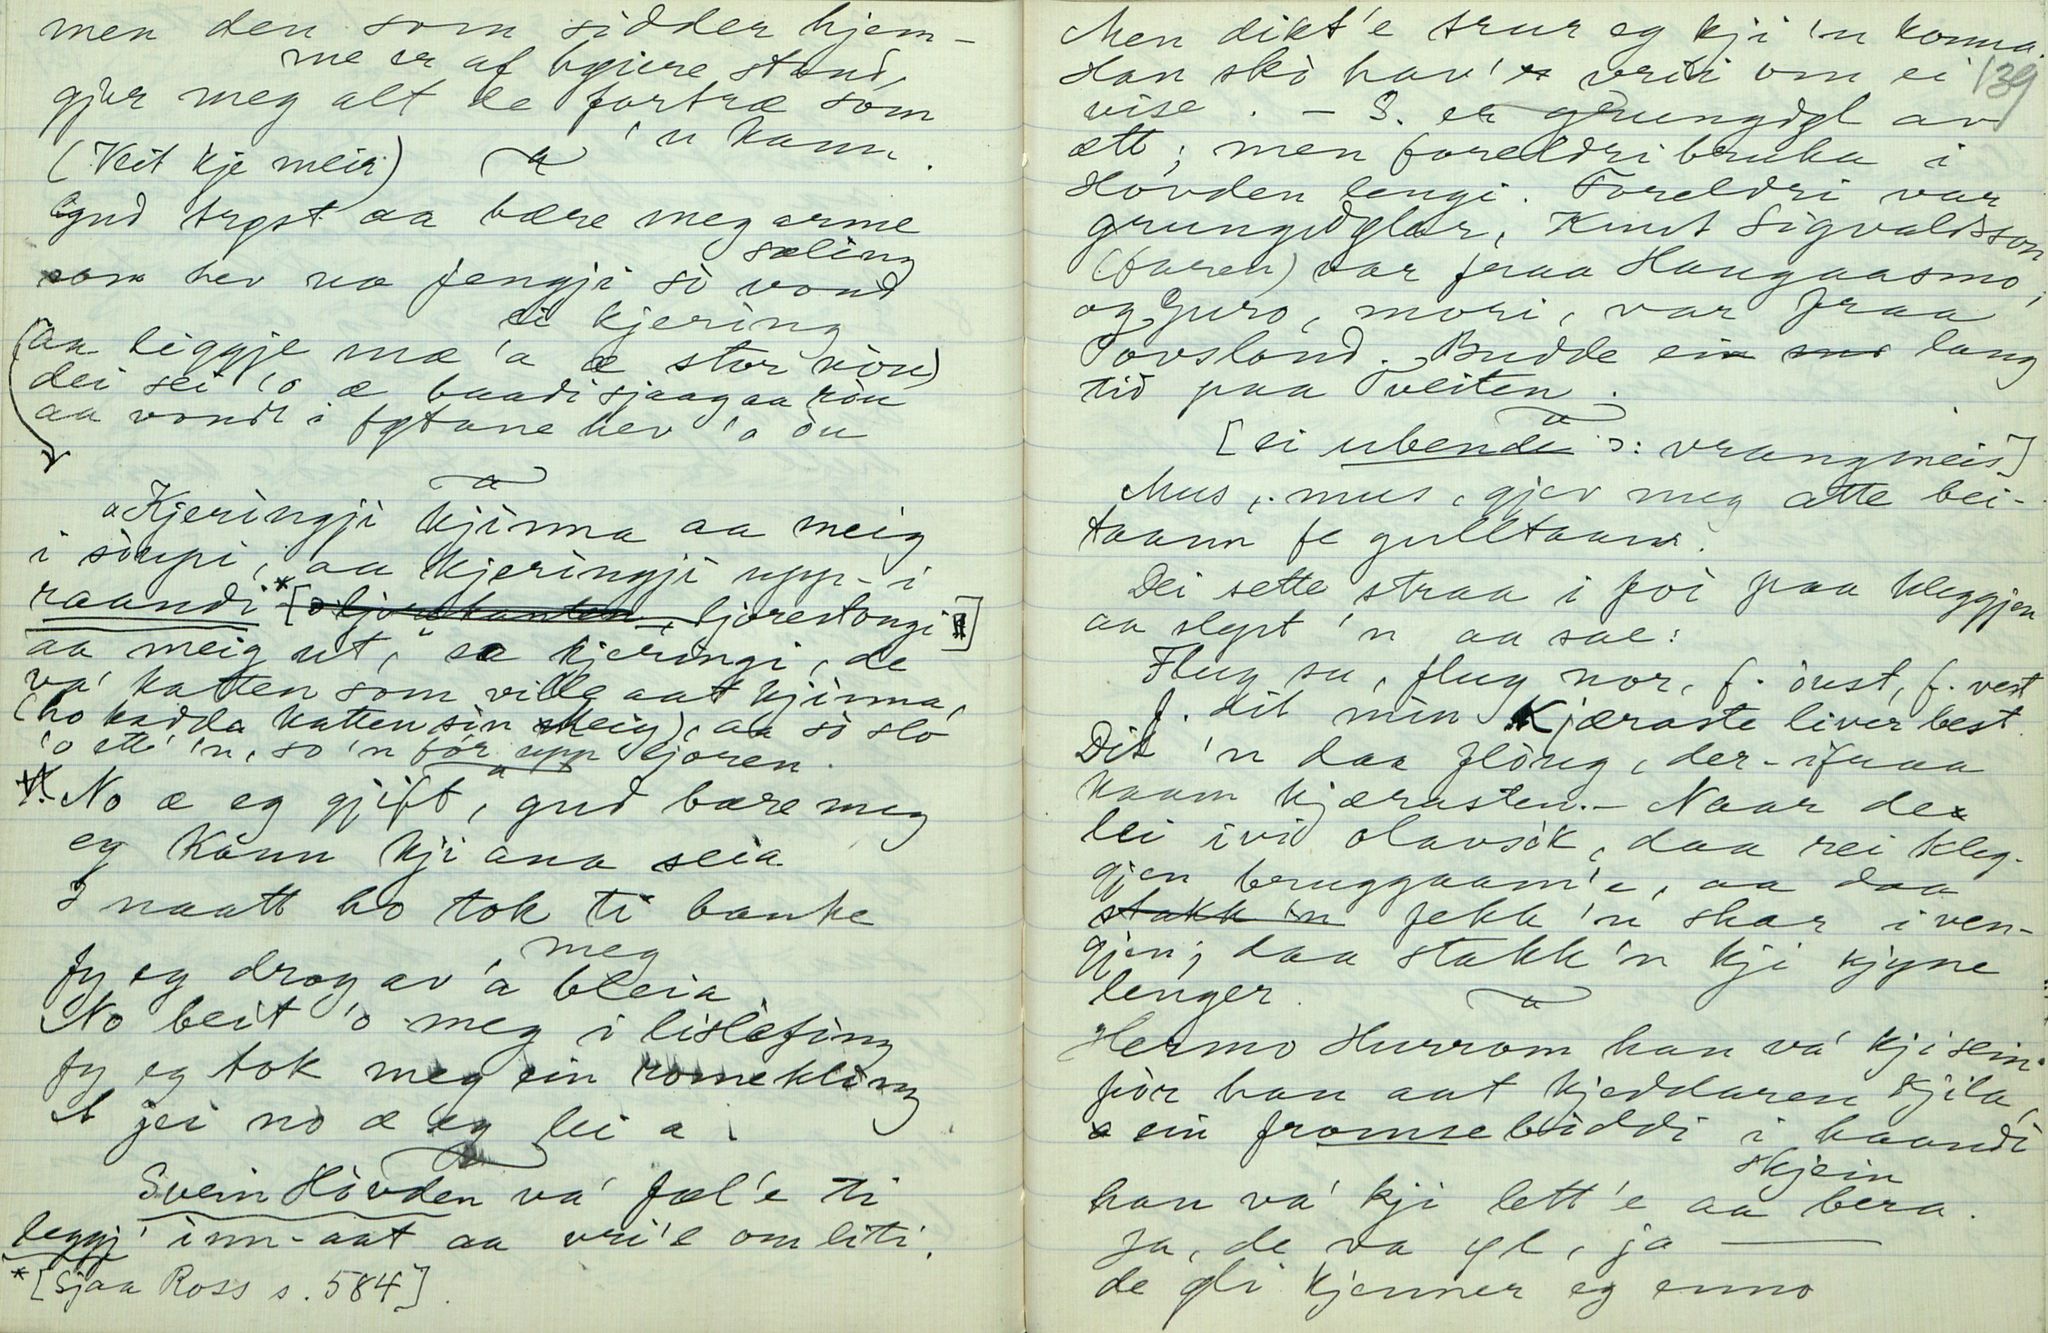 men den som sidder hjem-
me er af høiere stand,
gjer meg alt de fortræ som
'n kann.
(Veit kje meir)
Gud trøst aa bære meg arme
sæling
som hev no fengji sò vond
ei kjering
(aa liggje mæ 'a æ stor nòu)
dei sei 'o æ baadi sjaag aa ròu
aa vondt i føtane hev 'o òu
"Kjeringji kjinna aa meig
i sòupi, aa kjeringji upp-i
raandi* [ljorestongi]
aa meig ut," sa kjeringi, de
va' katten som ville aat kjinna,
(ho kadda katten sin Meig), aa sò slo
'o ette 'n, so 'n fór upp ljoren.
No æ eg gjift, gud bære meg
eg kann kji ana seia
I naatt ho tok ti banke
meg
fy eg drog av 'a bleia
No beit 'o meg i lislefing
fy eg tok meg ein romekling
A jei no æ eg lei a.
Svein Hòvden va' fæl'e ti
leggj' inn-aat aa vri'e om liti.
*[Sjaa Ross s. 584].
Men dikt'e trur eg kji 'n konna.
139
Han skò hav'e vriti om ei
vise. – S. er grungdøl av
ætt; men foreldri bruka i
Hovden lengi. Foreldri var
grungdøler, Knut Sigvaldsson
(faren) var fraa Haugaasmo,
og Guro, mori, var fraa
Tovslond. Budde ein lang
tid paa Tveiten.
[ei ubende ɔ: vrangmeis]
Mus, mus, gjev meg atte bei-
taann fe gulltaann.
Dei sette straa i foi paa kleggjen
aa slept 'n aa sae:
Flug su, flug nor, f. òust, f. vest
f. dit min Kjæraste liver best.
Dit 'n daa flòug, der-ifraa
kaam kjærasten. – Naar de
lei ivi olavsòk, daa rei kleg-
gjen bruggaam'e, aa daa
stakk 'n fekk 'n skar i ven-
gjen; daa stakk 'n kji kjyne
lenger.
Hermo Hurrom han va' kji sein.
fòr han aat kjeddaren kjila,
ein fromsebiddi i haandi
skjein
han va' kji lett'e aa bera.
Ja, de va øl, ja ——
de øli kjenner eg enno